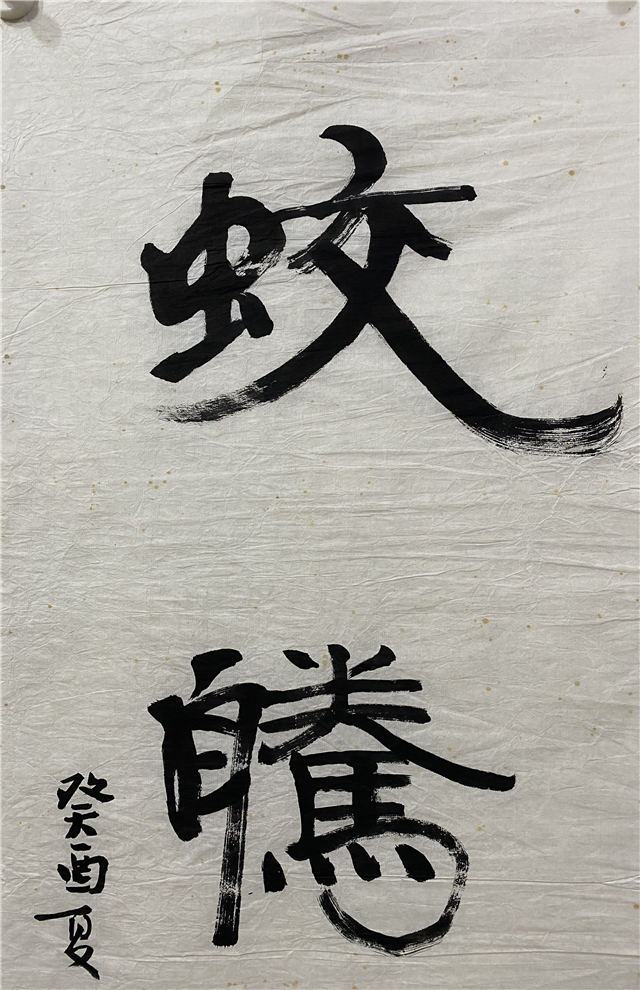 蛟
騰
癸酉夏